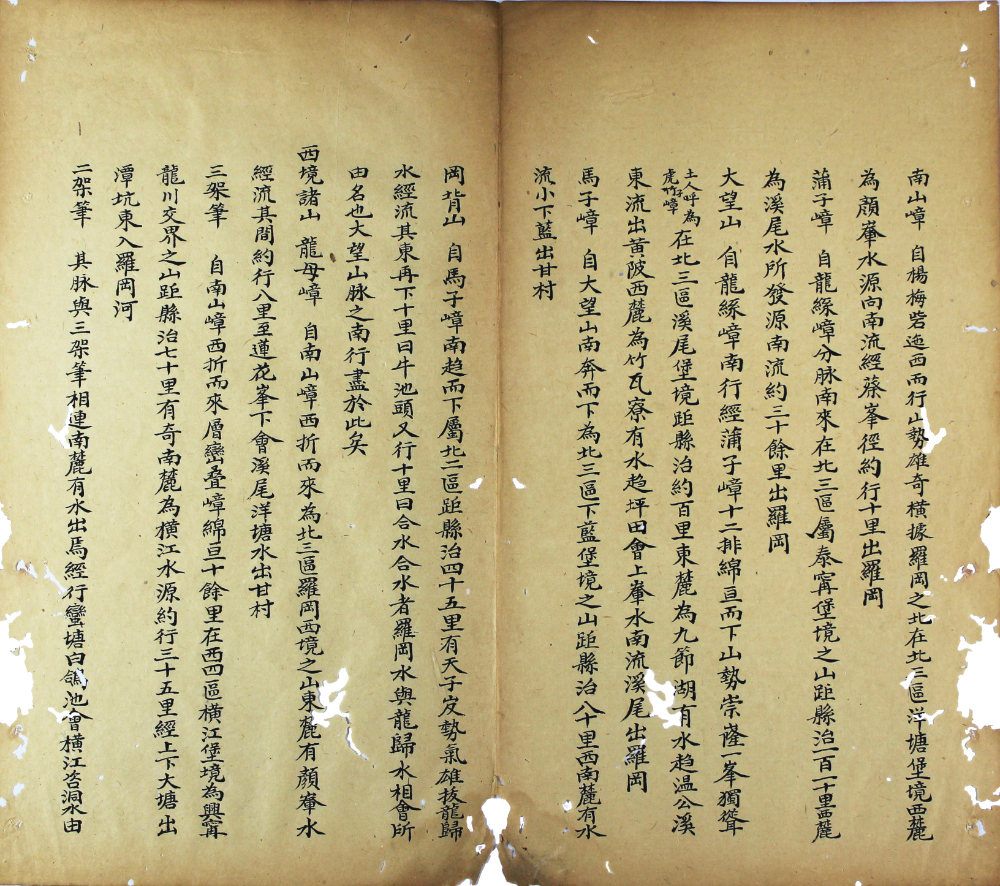 南山嶂　自楊梅砦迤西而行山勢雄奇橫據羅岡之北在北三區洋塘堡境西麓
為顏峯水源向南流經蔡峯徑約行十里出羅岡
蒲子嶂　自龍絲嶂分脉南來在北三區屬泰寗堡境之山距縣治一百一十里西麓
為溪尾水所發源南流約三十餘里出羅岡
大望山　自龍絲嶂南行經蒲子嶂十二排綿亘而下山勢崇窿一峯獨聳
土人呼為虎竹子嶂在北三區溪尾堡境距縣治約百里東麓為九節湖有水趋温公溪
東流出黃陂西麓為竹瓦寮有水趋坪田會上輋水南流溪尾出羅岡
馬子嶂　自大望山南奔而下為北三區下藍堡境之山距縣治八十里西南麓有水
流小下藍出甘村
岡背山　自馬子嶂南趋而下屬北二區距縣治四十五里有天子岌勢氣雄拔龍歸
水經流其東再下十里曰牛池頭又行十里曰合水合水者羅岡水與龍歸水相會所
由名也大望山脉之南行盡於此矣
西境諸山　龍母嶂　自南山嶂西折而來為北三區羅岡西境之山東麓有顏輋水
經流其間約行八里至蓮花峯下會溪尾洋塘水出甘村
三架筆　自南山嶂西折而來層巒叠嶂綿亘十餘里在西四區橫江堡境為興寗
龍川交界之山距縣治七十里有奇南麓為橫江水源約行三十五里經上下大塘出
潭坑東入羅岡河
二架筆　其脉與三架筆相連南麓有水出焉經行蠻塘白鴿池會橫江峇洞水由